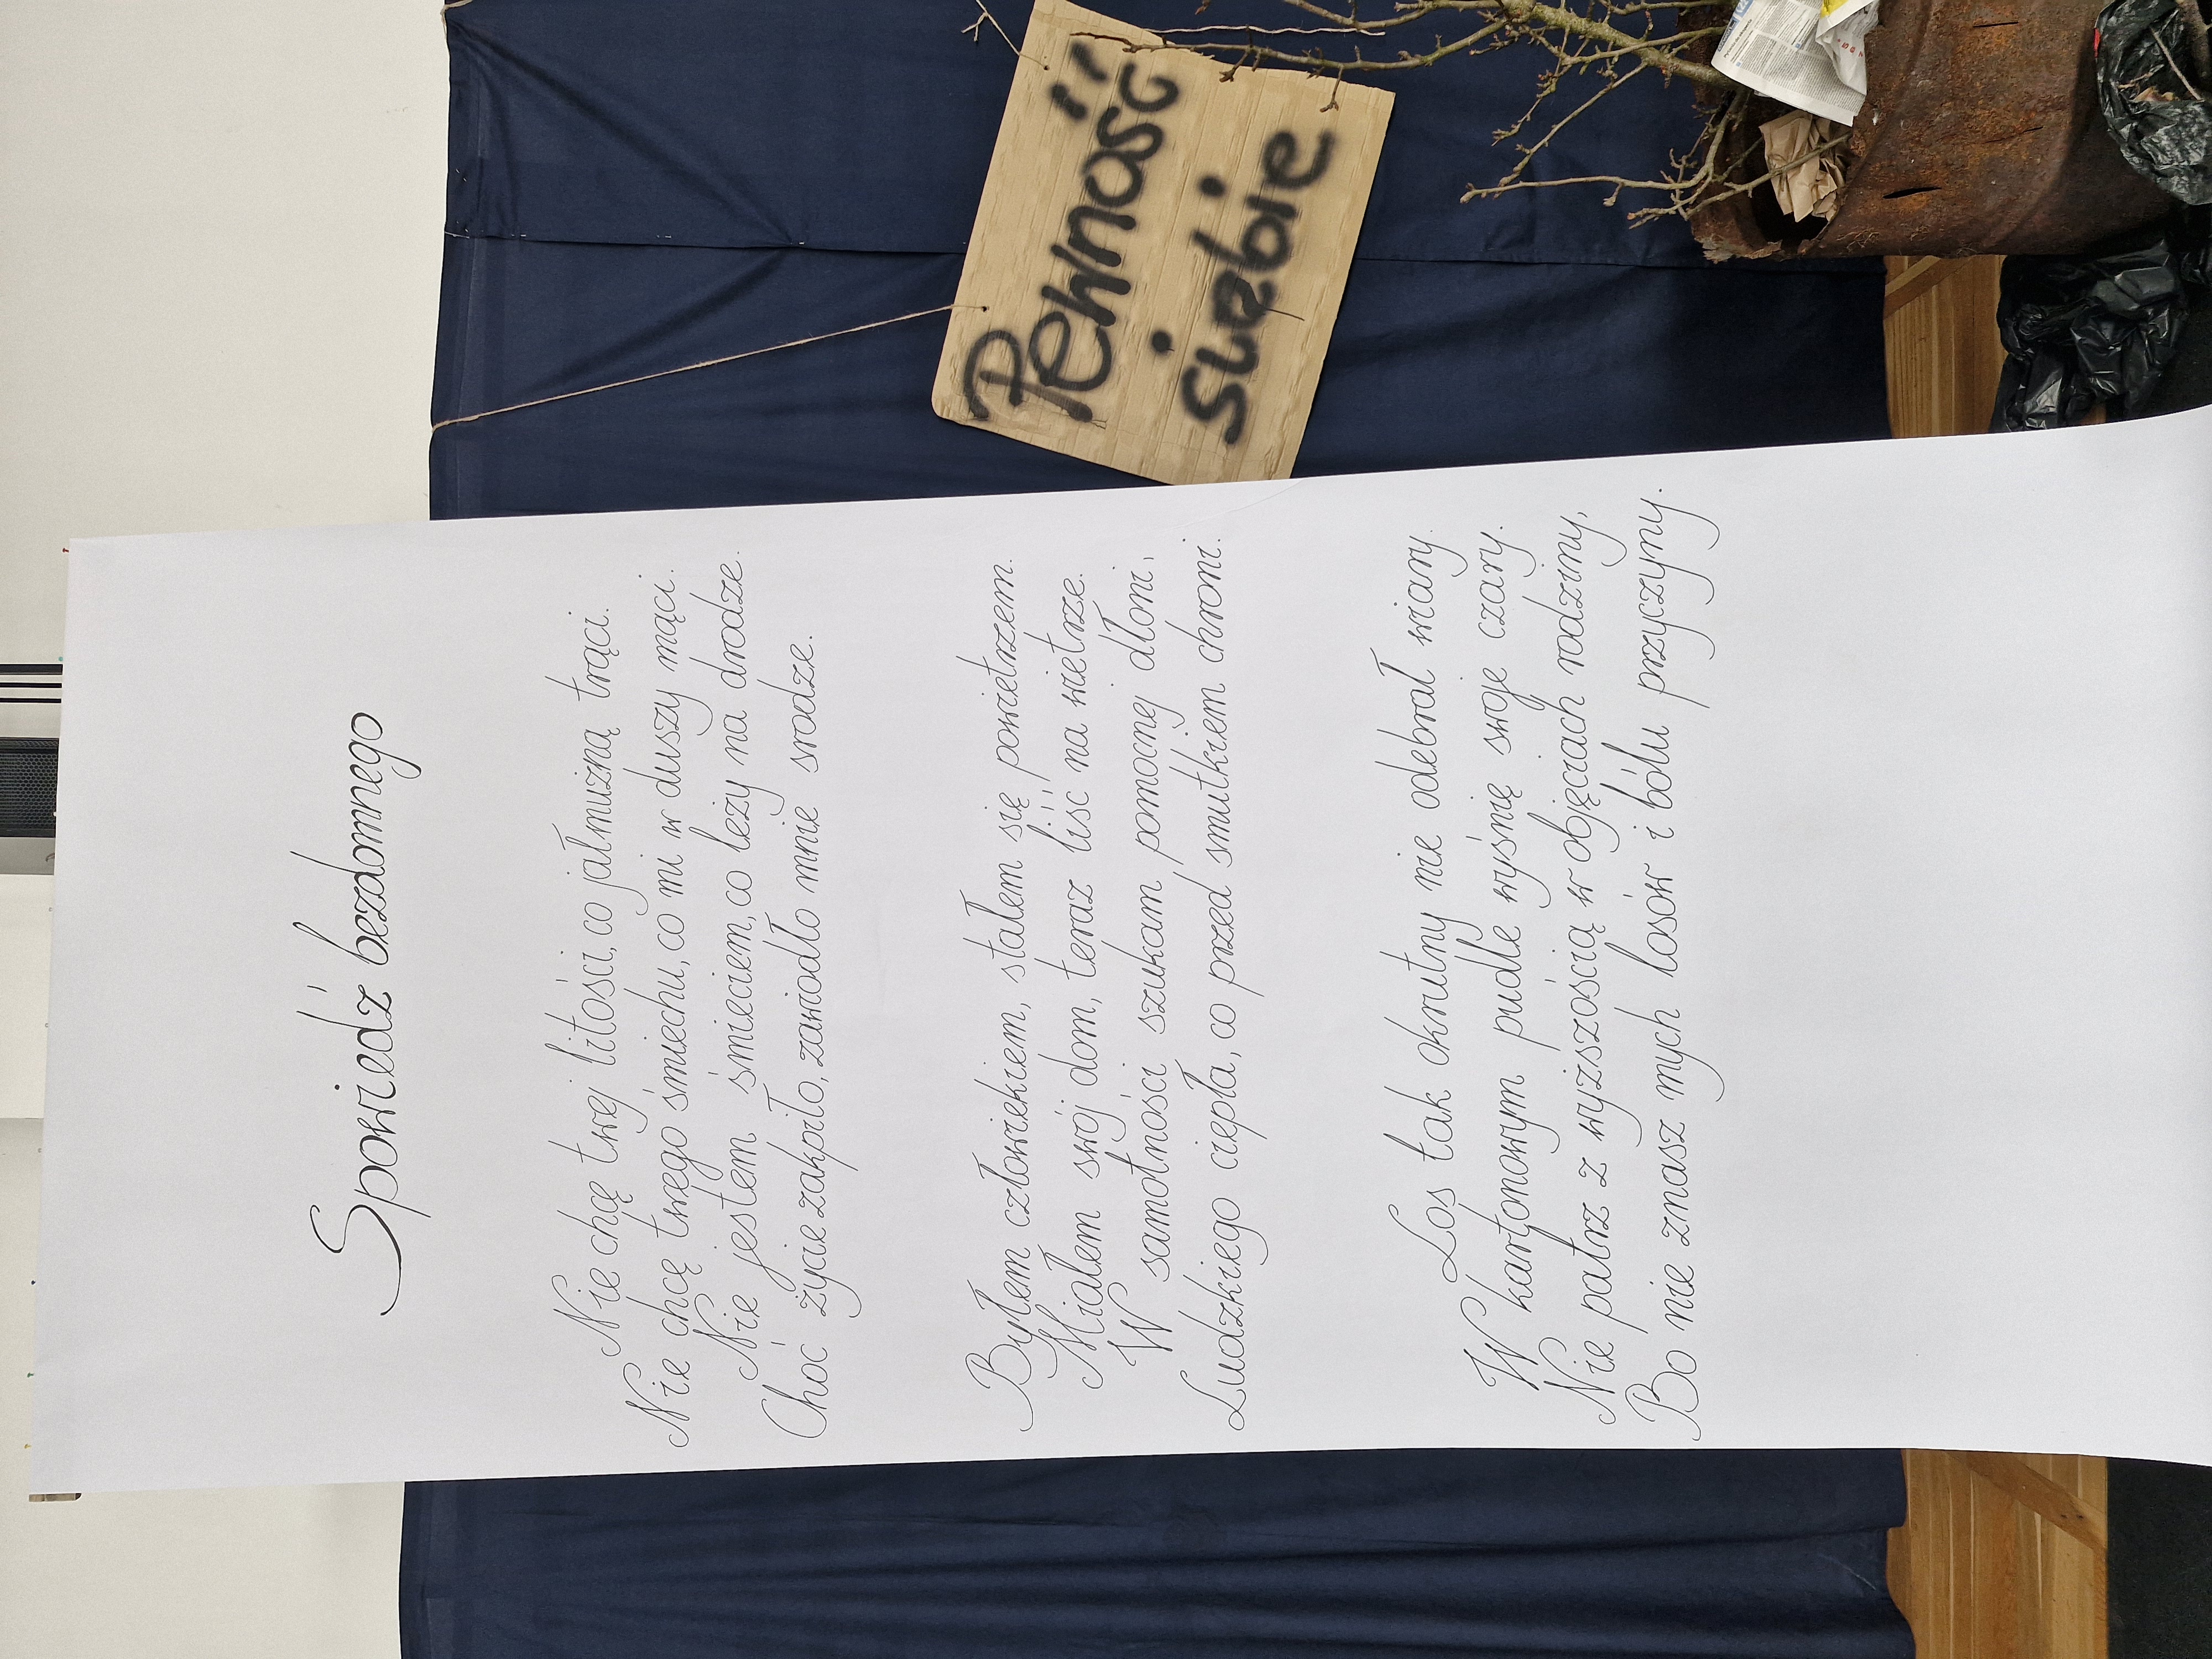 Spowiedź bezdomnego
Nie chcę twej litości, co jałmużną trąci.
Nie chcę twego śmiechu, co mi w duszy mąci.
Nie jestem śmieciem, co leży na drodze.
Choć życie zakpiło, zawiodło mnie srodze.
Byłem człowiekiem, stałem się powietrzem.
Miałem swój dom, teraz liść na wietrze.
W samotności szukam pomocnej dłoni,
Ludzkiego ciepła, co przed smutkiem chroni.
Los tak okrutny nie odebrał wiary.
W kartonowym pudle wyśnię swoje czary.
Nie patrz z wyższością w objęciach rodziny,
Bo nie znasz mych losów i bólu przyczyny.
Pewność
siebie